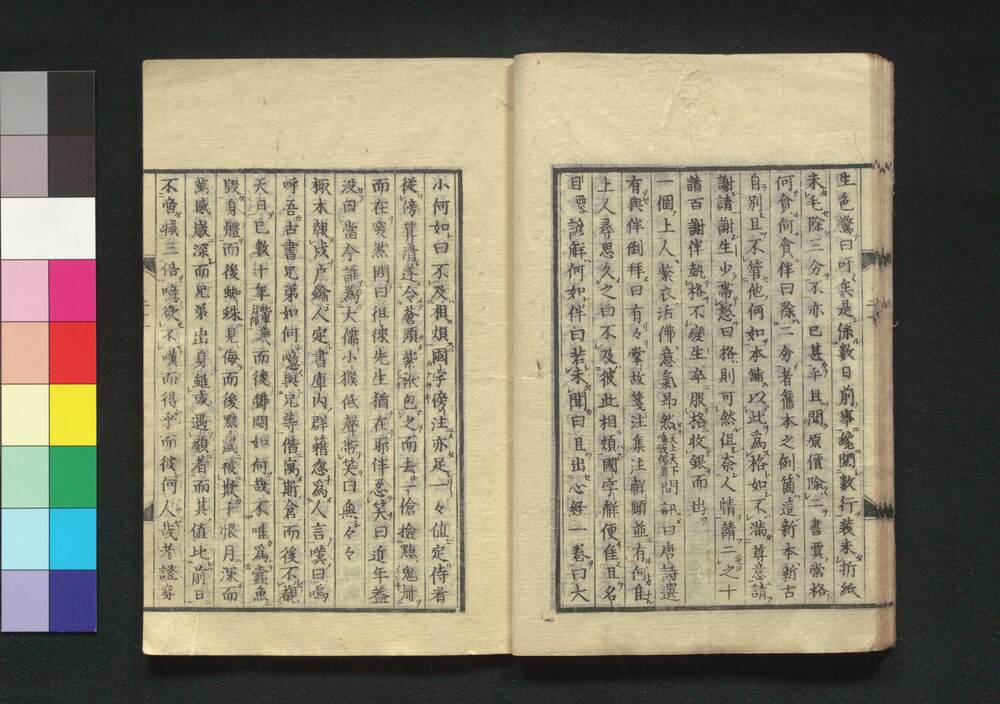 生色驚曰吁矣是係數日前事纔閱數行裝未折紙
未毛除三分不亦已甚乎且聞原價除二書賈常格
何貪何貪伴曰除二分者舊本之例箇這新本新古
自別且不管他何如本鋪以此爲格如不滿尊意請
謝請謝生少帶怒曰格則可然但奈人情請二之十
請百謝伴執格不變生卒服格收銀而出
一個上人紫衣活佛意氣昂然天上天下唯我獨尊問訊曰唐詩選
有與伴倒拜曰有々掌故箋注集注解頤並有何隹
上人尋思久之曰不及彼此相煩國字解便隹且名
目要諺解何如伴曰若未聞曰且出心經一卷曰大
小何如曰不及相煩國字傍注亦足一々値定侍者
從傍算濟遂令蒼頭紫袱包之而去一傖撿點鬼冊
而在突然問曰徂徠先生猶在耶伴忍笑曰近年蓋
沒曰當今誰爲大儒小猴低聲帶笑曰無々々
棷木韓戍戶鑰人定書庫內群籍忽爲人言嘆曰嗚
呼吾古書兄弟如何噫與兄等偕寓斯倉而後不覩
天日已數十年而後鬱悶如何哉不唯爲蠹魚
毀身體而後蜘蛛見侮而後黠鼠被欺恨月深而
萬感歲深而兄弟出身雖或遇顧者而其値比前日
不啻減三倍噫欲不嘆而得乎而彼何人哉考證穿